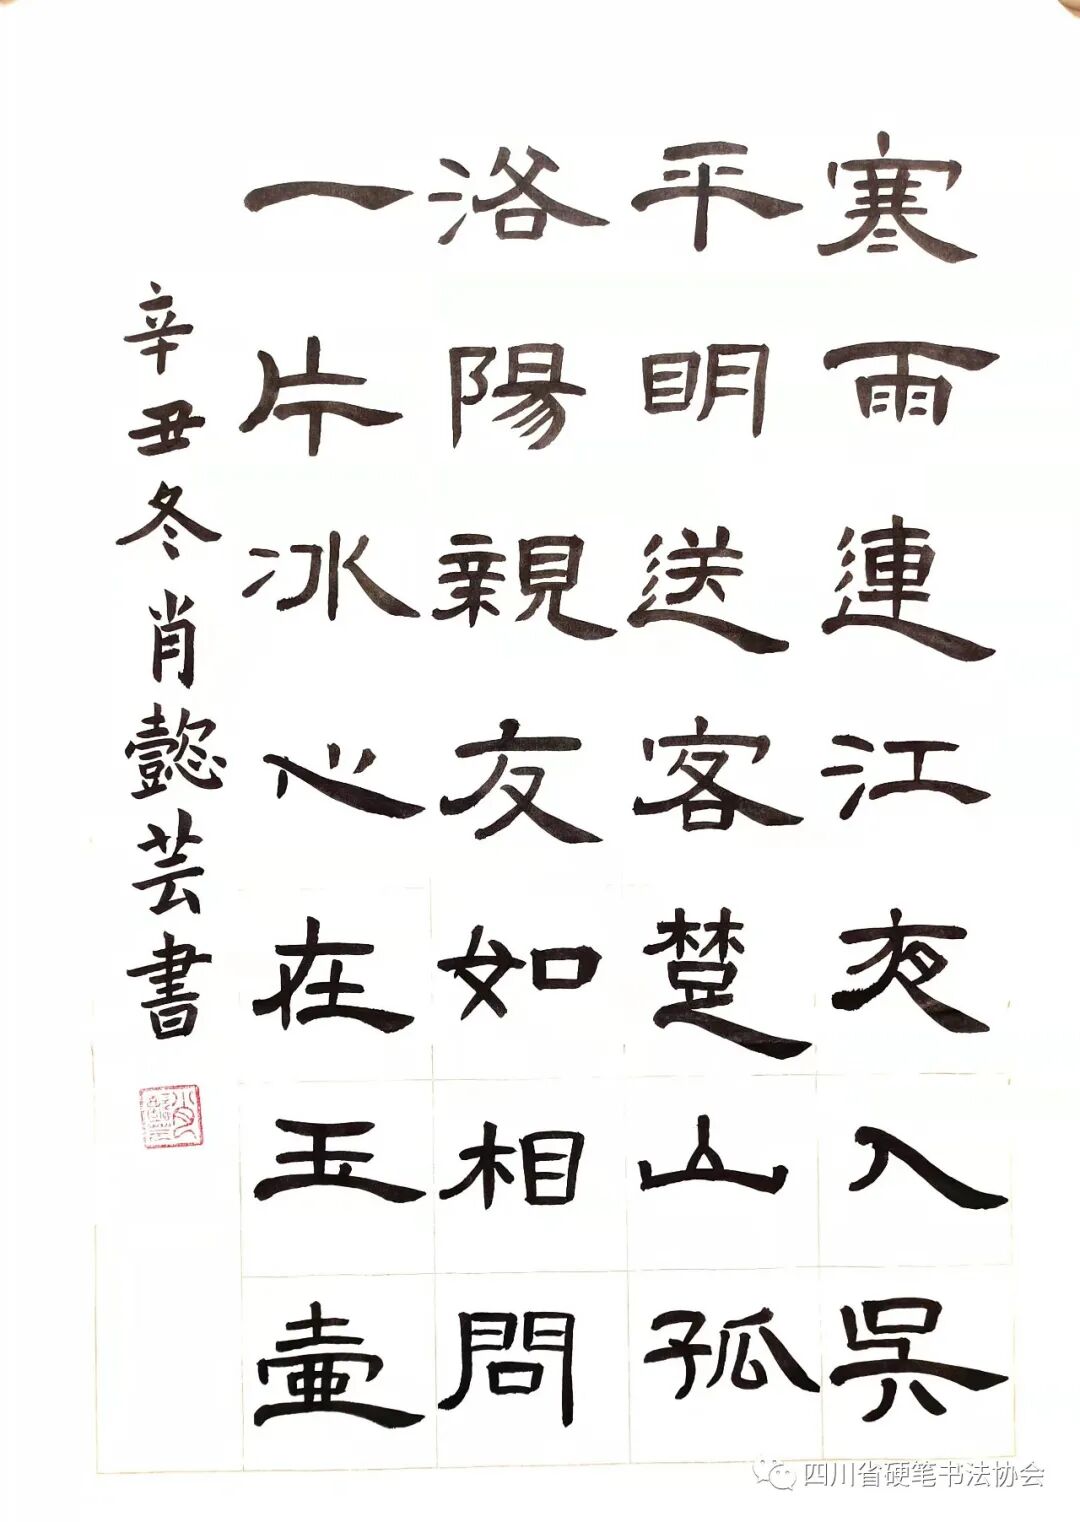 寒雨連江夜入吳
平明送客楚山孤
洛陽親友如相問
一片冰心在玉壷
辛丑冬肖懿芸書
四川省硬笔书法协会